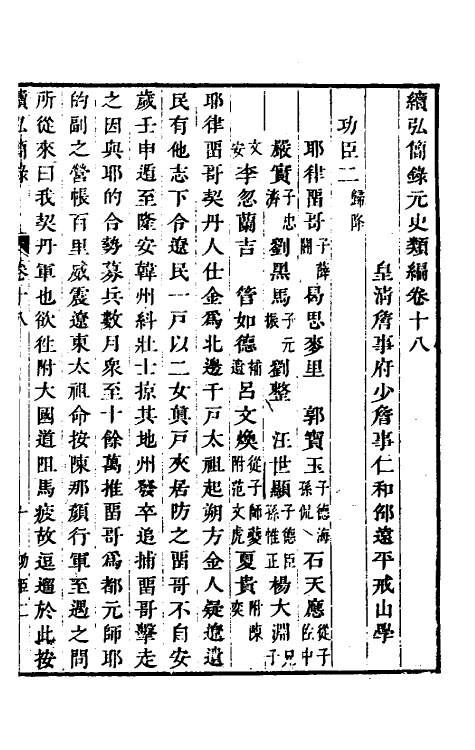 續弘簡錄元史類編卷十八
皇淸詹事府少詹事仁和邵遠平戒山學
功臣二歸降
耶律畱哥子薛闍 曷思麥里 郭寶玉子德海孫侃 石天應從子佐中
嚴實子忠濟 劉黑馬子元振 劉整 汪世顯子德臣孫惟正 楊大淵兄子
文安 李忽蘭吉 管如德補遺 呂文煥從子師夔附范文虎 夏貴附陳奕
耶律畱哥契丹人仕金爲北邊千戸太祖起朔方金人疑遼遺
民有他志下令遼民一戸以二女眞戸夾居防之畱哥不自安
歲壬申遁至隆安韓州糾壯士掠其地州發卒追捕畱哥擊走
之因與耶的合勢募兵數月衆至十餘萬推畱哥爲都元帥耶
的副之營帳百里威震遼東太祖命按陳那顏行軍至遇之問
所從來曰我契丹軍也欲往附大國道阻馬疲故逗遛於此按
續弘簡錄 卷十八 一 功臣二